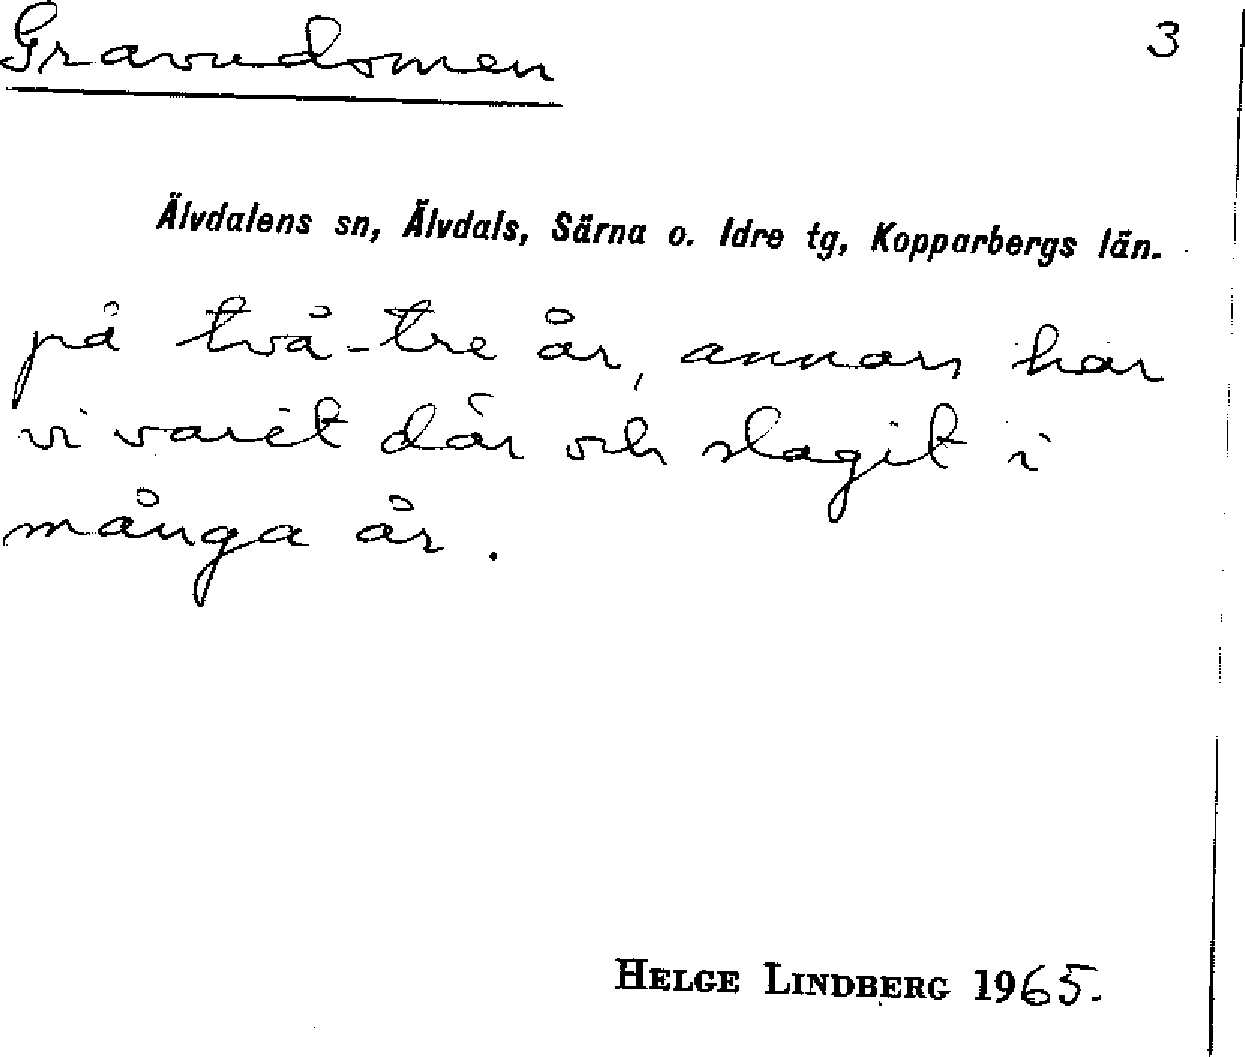 Gravudsmen 3
Älvdalens sn, Älvdals, Särna o. Idre tg, Kopparbergs län.
på två-tre år, annars har
vi varit där och slagit i
många år.
HELGE LINDBERG 1965.